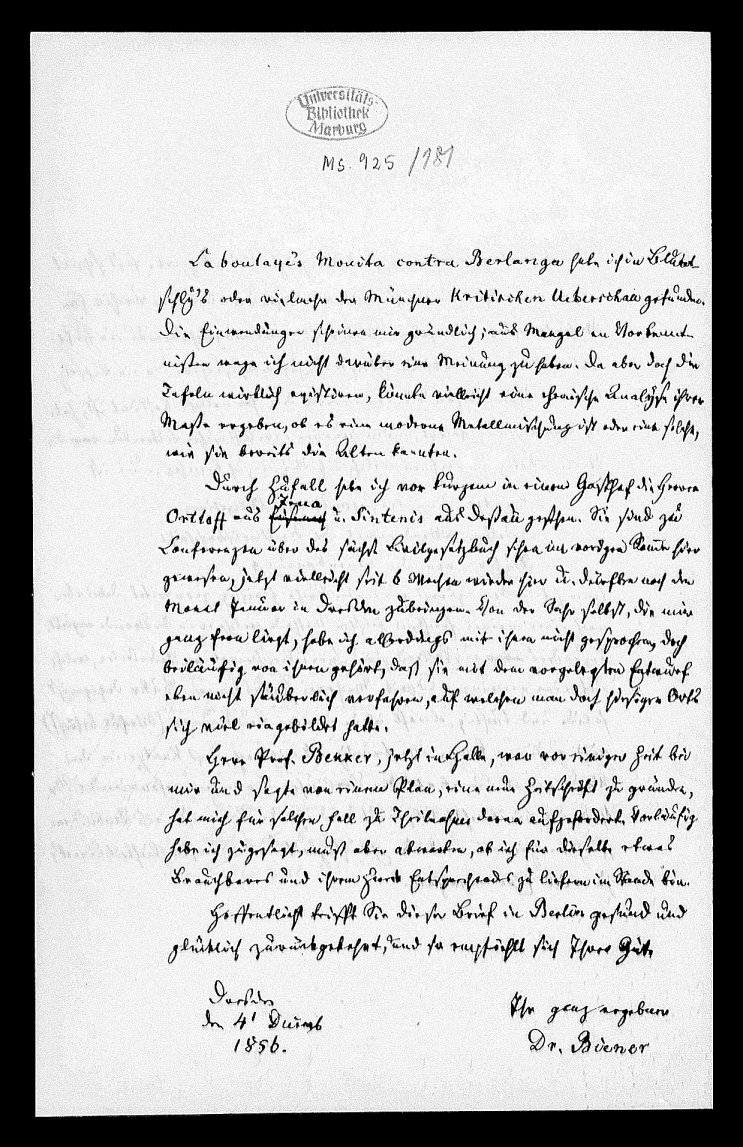 Universitäts-
Bibliothek
Marburg
Ms. 925 /181
Laboulaye's Monita contra Berlanga habe ich in Bluntsch
schly's oder vielmehr der Münchner Kritischen Ueberschau gefunden.
Die Einwendungen scheinen mir gründlich; aus Mangel an Vorkennt-
nissen wage ich nicht darüber eine Meinung zu haben. Da aber doch die
Tafeln wirklich existiren, könnte vielleicht eine chemische Analyse ihrer
Masse ergeben, ob es eine moderne Metallmischung ist oder eine solche,
wie sie bereits die Alten kannten.
Durch Zufall habe ich vor kurzem in einem Gasthof die Herren
Jena
Ortloff aus Eisenach u. Sintenis aus Dessau gesehen. Sie sind zu
Conferenzen über das sächs. Civilgesetzbuch schon im vorigen Somme hier
gewesen, jetzt vielleicht seit 6 Wochen wieder hier u. dürften noch den
Monat Januar in Dresden zubringen. Von der Sache selbst, die mir
ganz fern liegt, habe ich allerdings mit ihnen nicht gesprochen, doch
beiläufig von ihnen gehört, daß sie mit dem vorgelegten Entwurf
eben nicht säuberlich verfahren, auf welchen man doch hiesigen Orts
sich viel eingebildet hatte.
Herr Prof. Bekker, jetzt in Halle, war vor einiger Zeit bei
mir und sagte von einem Plan, eine neue Zeitschrift zu gründen,
hat mich für solchen Fall zu Theilnahme daran aufgefordert. Vorläufig
habe ich zugesagt, muß aber abwarten, ob ich für dieselbe etwas
Brauchbares und ihrem Zweck Entsprechendes zu liefern im Stande bin.
Hoffentlich trifft Sie dieser Brief in Berlin gesund und
glücklich zurückgekehrt, und so empfiehlt sich Ihrer Güte
Dresden
den 4t Decemb
1856.
Ihr ganz ergebener
Dr. Biener